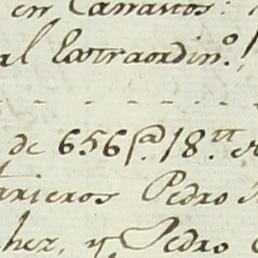 en Canastos:
al Extraordin.º
de 656 @. 18. tt
arrieros Pedro
chez, y Pedro